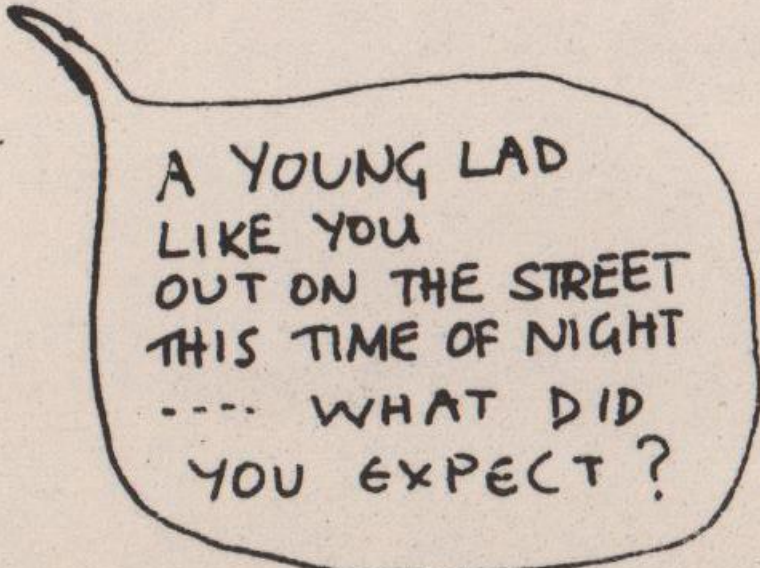 A YOUNG LAD
LIKE YOU
OUT ON THE STREET
THIS TIME OF NIGHT
---- WHAT DID
YOU EXPECT?